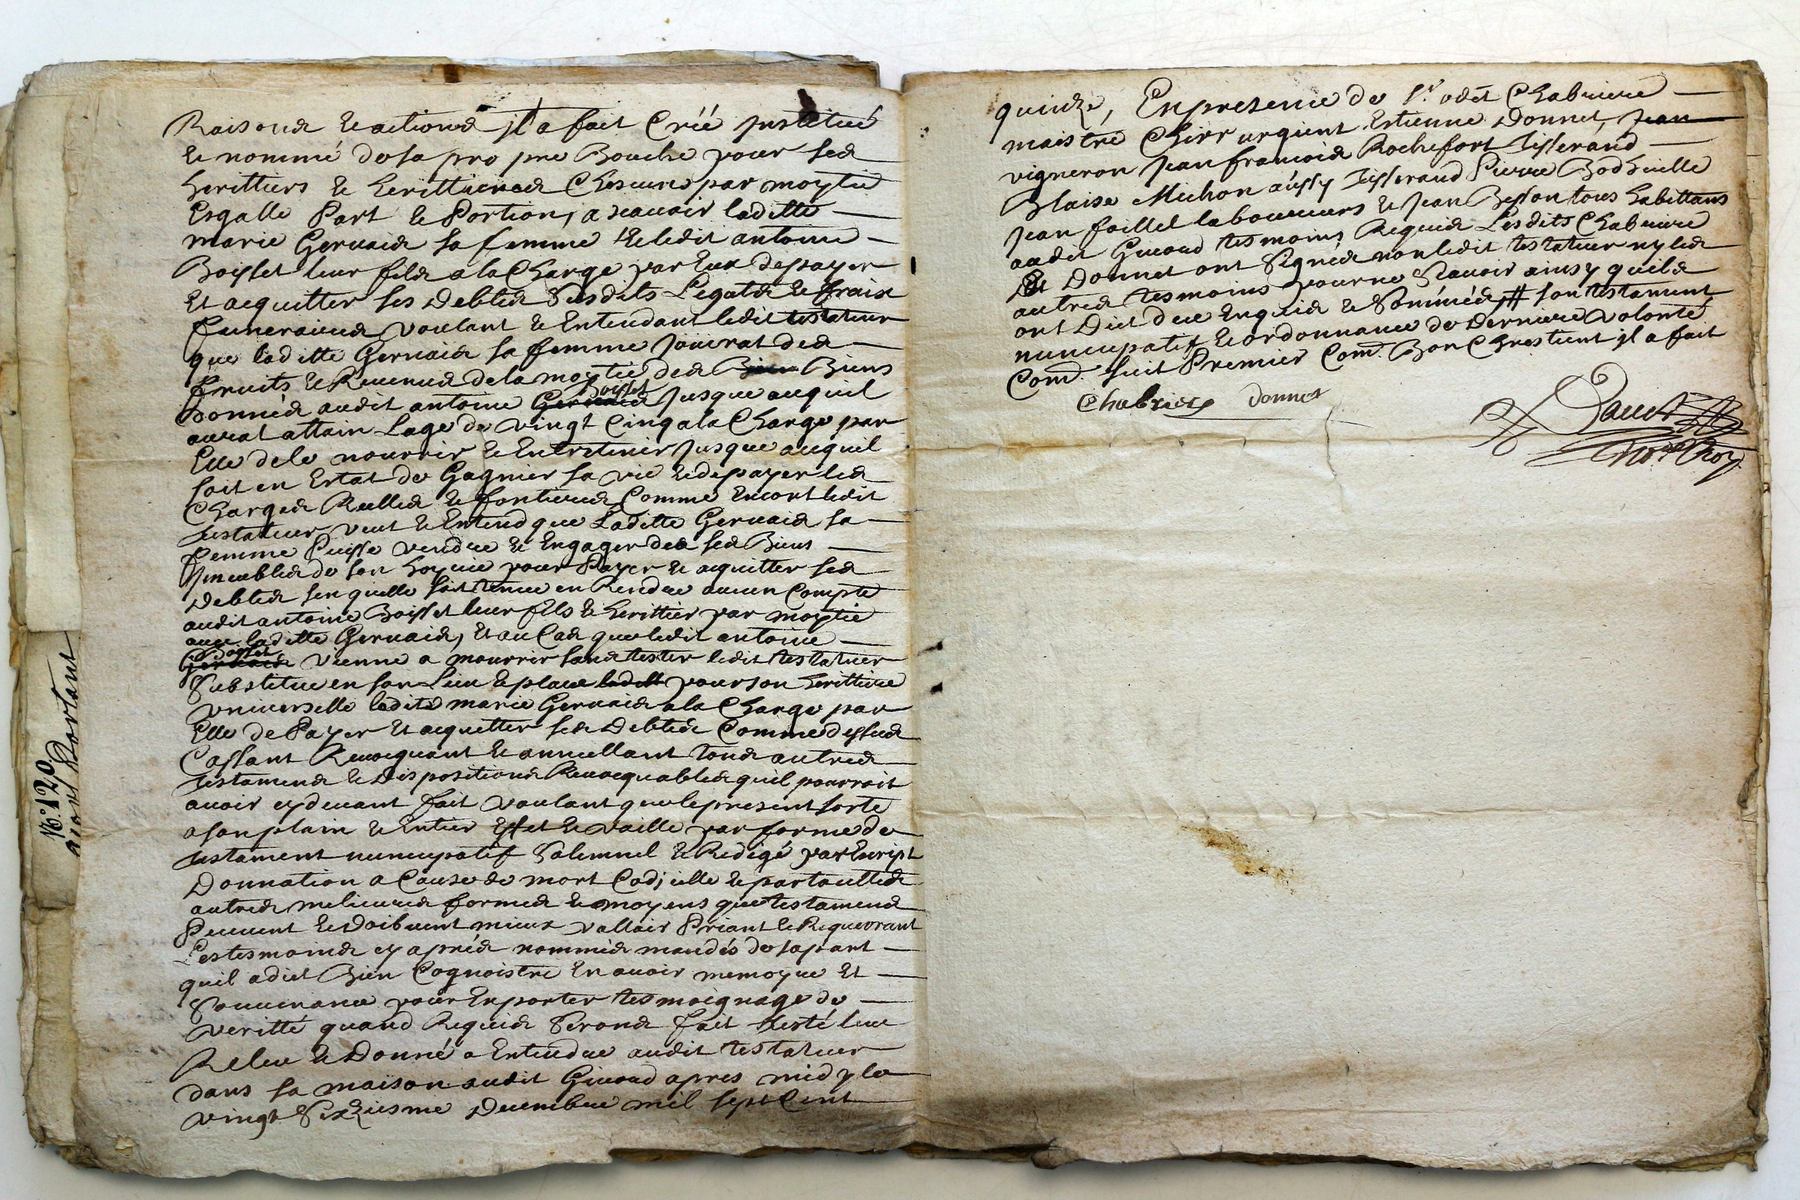 Raisons et actions jl a fait Créé jnstitué
et nommé de sa propre Bouche pour ses
heritiers et heritieres Chescuns par moytié
Esgalle Part et Portion, a scauoir laditte
marie Geruais sa femme et ledit antoine
Boisset leur fils a la Charge par Eux de payer
Et acquitter ses Debtes Susdits Legats et fraix
funeraires voulant et Entendant ledit testateur
que laditte Geruais sa femme jouirat des
fruits et Reuenus de la moytié des Biens
Donnés audit antoine Boisset jusque ac quil
aurat attain Lage de vingt Cinq a la Charge par
Elle de le nourrir et Entretenir jusque ac quil
soit en Estat de Gagnier sa vie et de payer les
Charges Reelles et fontieres Comme Encort ledit
testateur veut et Entend que Laditte Geruais sa
femme Puisse vendre et Engager des ses Biens
jmeubles de son hoyrie pour Payer et acquitter ses
Debtes sen quelle soit tenue en Rendre aucun Compte
audit antoine Boisset leur fils et heritier par moytié
auec laditte Geruais, Et au Cas que ledit antoine
Boisset Vienne a mourrir sans tester ledit testateur
Substitue en son Lieu et place pour son heritiere
vniuerselle ladite marie Geruais a la Charge par
Elle de Payer Et acquitter ses Debtes Comme dessus
Cassant Reuocquant et annullant tous autres
testamens et Dispositions Reuocquables quil pourroit
auoir cy deuant fait voulant que le present sorte
a son plain et Entier Effet et vaille par forme de
testament nuncupatif Solemnel et Redigé par Escript
Donnation a Cause de mort Codicille et par touttes
autres melieures formes et moyens que testamens
Peuuent et Doibuent mieux valloir Priant et Requerant
Les tesmoins cy aprés nommés mandés de sa part
quil a dict Bien Cognoistre En auoir memoyre Et
Souuenance pour En porter tesmoignage de
verité quand Requis Serons fait Leu
Releu et Donné a Entendre audit testateur
dans sa maison audit Giuord apres midy le
vingt Sixziesme Decembre mil sept Cent
quindze, En presence de Sr. odet Chabriere
maistre Chirurgient Estienne Donnet,
vigneron Jean francois Rochefort Tisserand
Blaise Michon aussy Tisserand Pierre
Jean faillet laboureurs et Jean Besson tous habittans
audit Giuord tesmoins Requis Lesdits Chabriere
Et Donnet ont Signés non ledit testateur ny les
autres tesmoins pour ne Scauoir ainsy quils
ont Dict de ce Enquis et Sommés, # son testament
nuncupatif et ordonnance de Derniere volonté
Com. suit Premier Com. Bon Chrestient jl a fait
Chabriere Donnet
No. 120